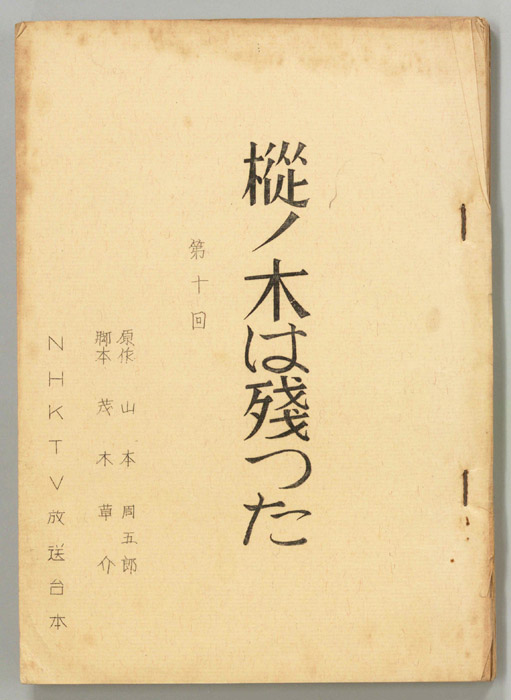 樅ノ木は残つた
第十回
原作 山本周五郎
脚本 茂木草介
NHKTV放送台本